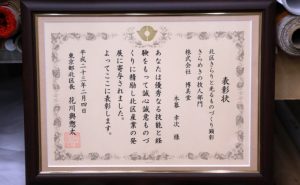 表彰状
北区きらりと光るものづくり顕彰
きらめきの技人部門
株式会社 博美堂
木幕 幸次 様
あなたは優秀なる技能と経
験をもって誠心誠意ものづ
くりに精励し北区産業の発
展に寄与されました。
よってここに表彰します。
平成二十三年二月四日
東京都北区長 花川與惣太